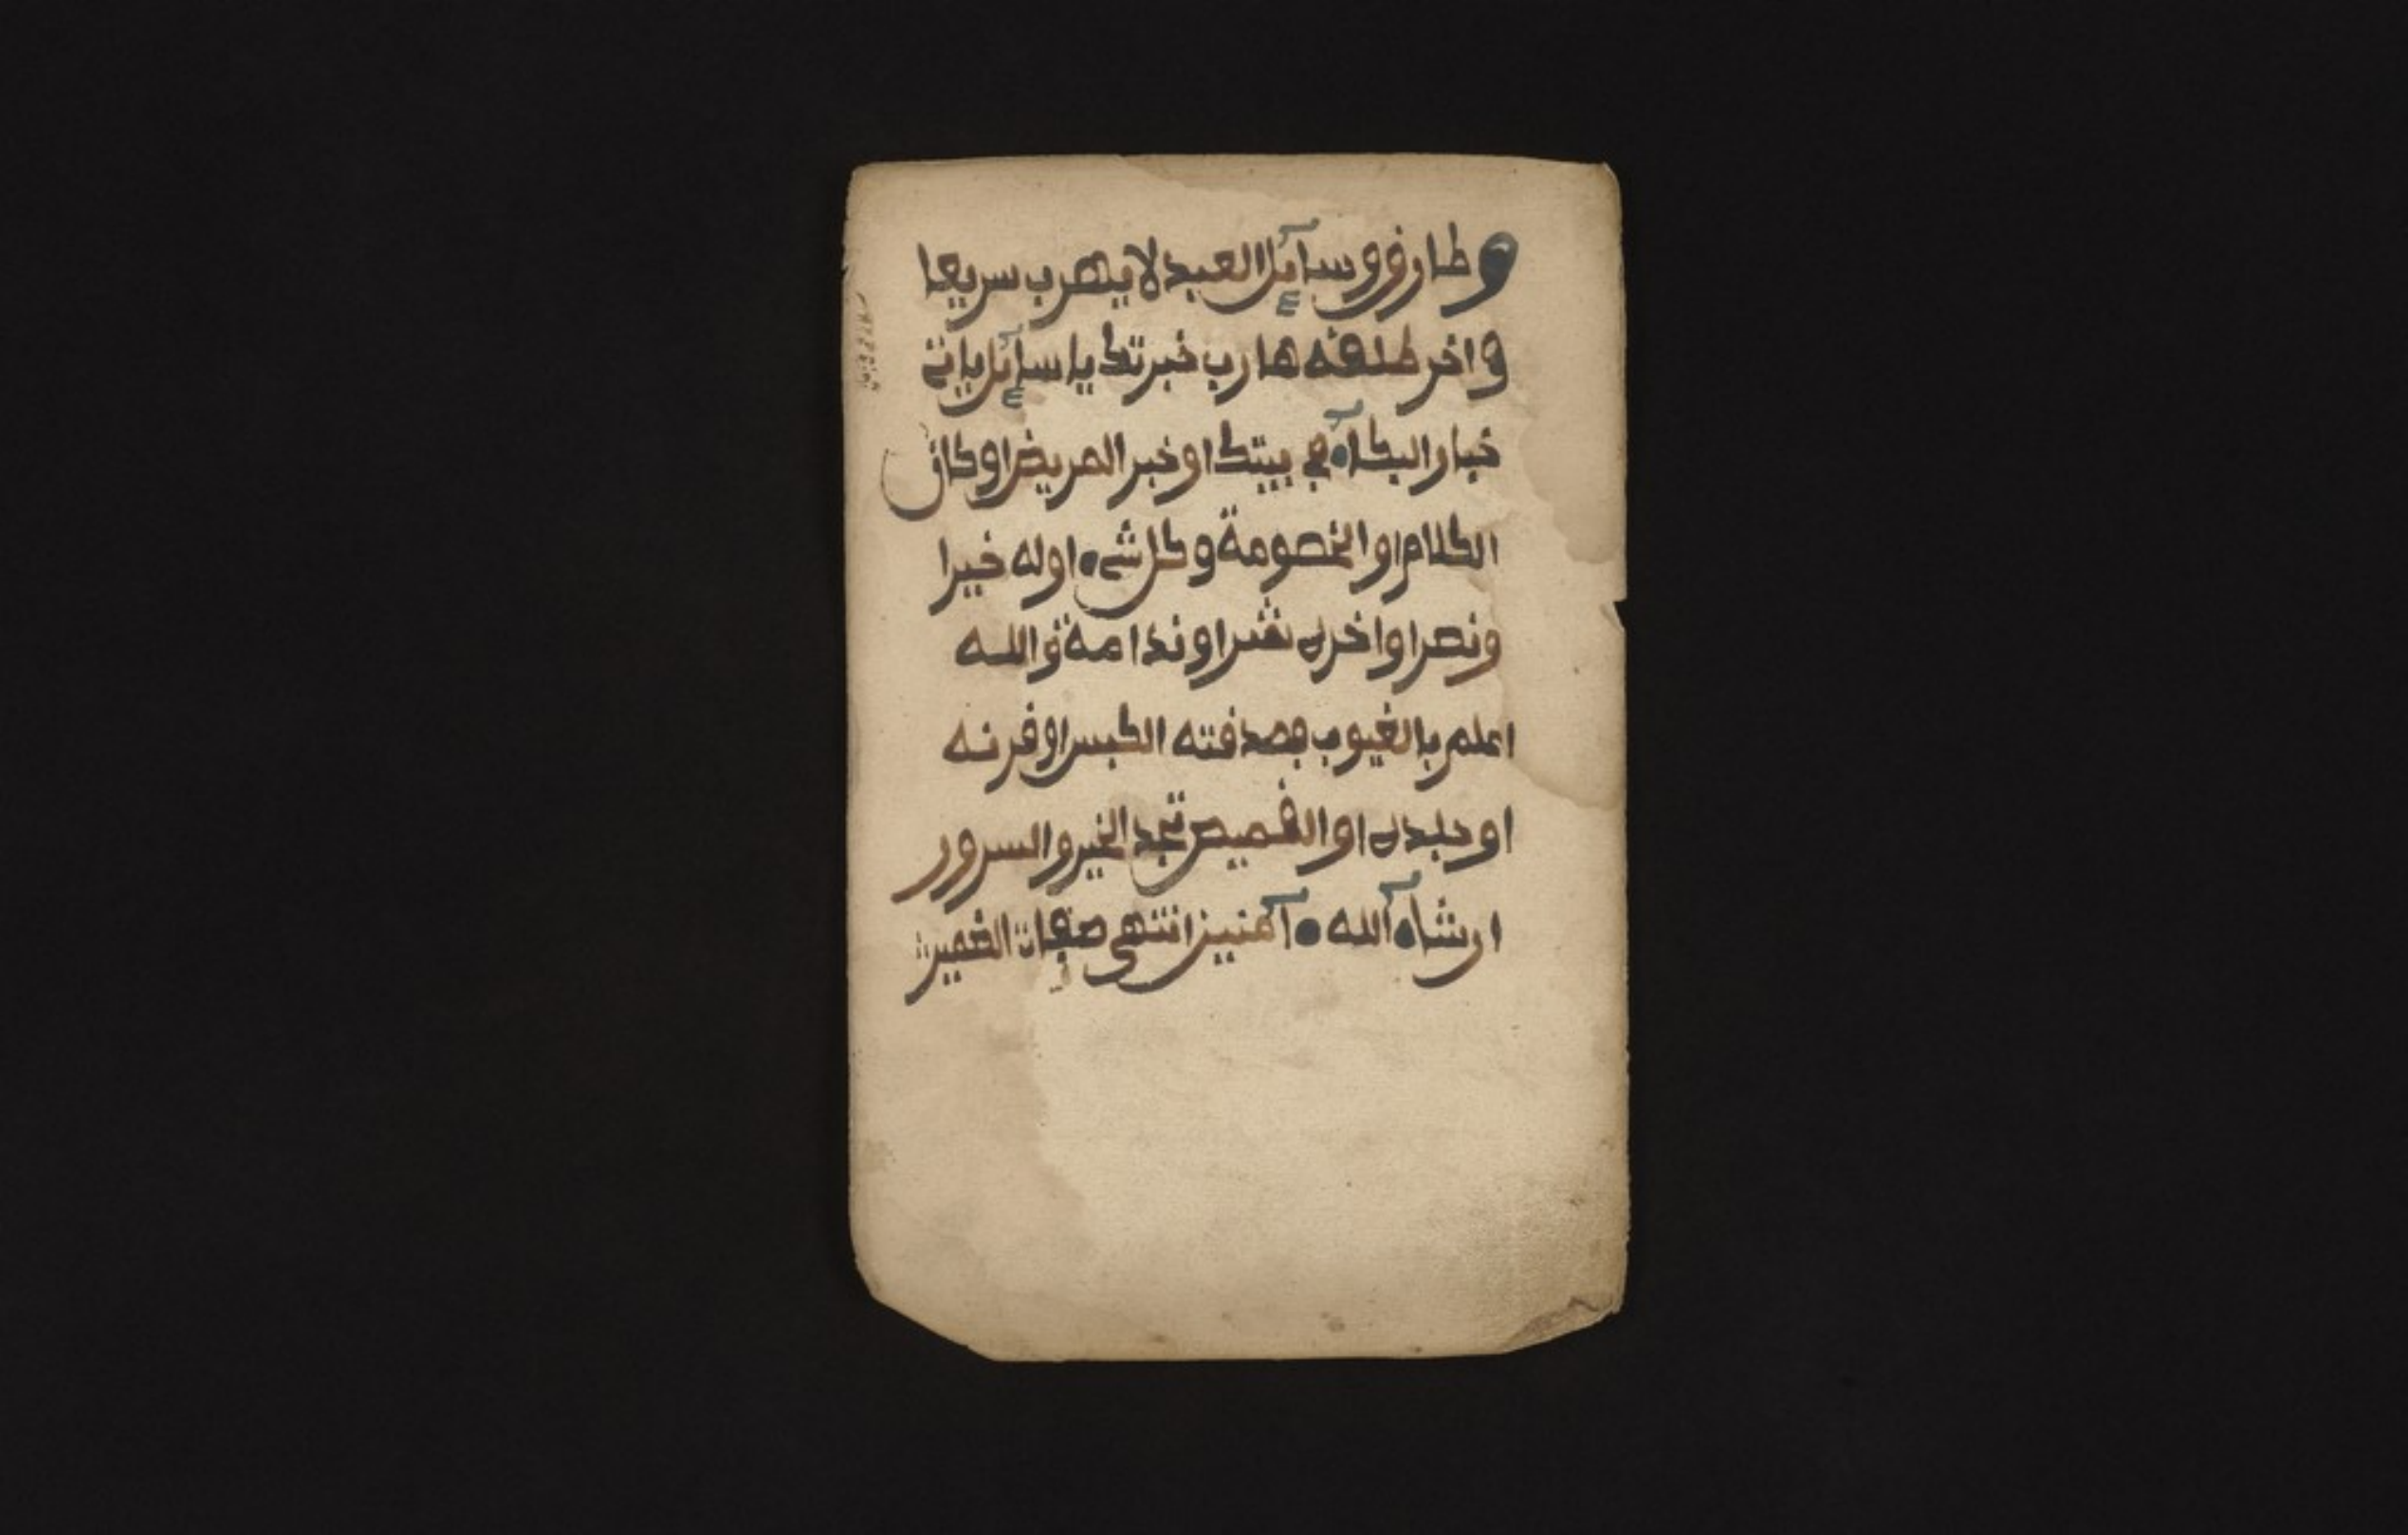 وطارق وسآئل العبد لا يهرب سريعا
واخر طلقه هارب خبرتك يا سآئل ياتي
خبار البكآء في بيتك او خبر المريض او كان
الكلام او الخصومة وكل شيء اوله خيرا
ونصرا واخره شرا وندامة والله
اعلم بالغيوب فصدقته الكبس او قرنه
او جلده او القميص تجد الخير والسرور
ان شآء الله ءآمنين انتهى صفات الضمير